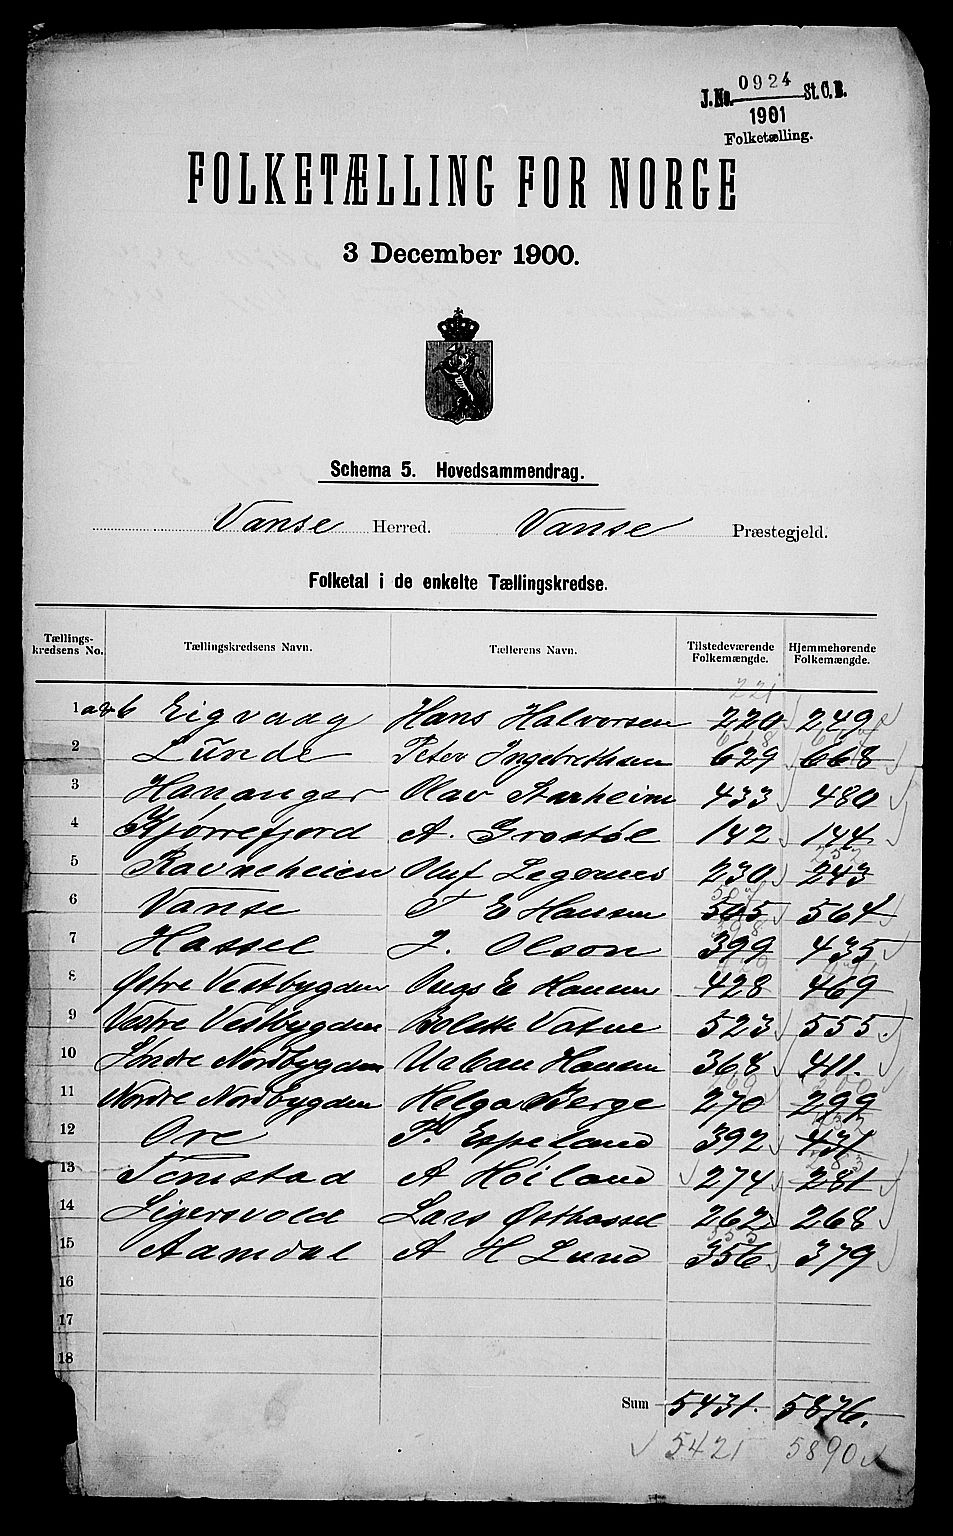 J.No. 0924 St.C.B.
1901
Folketælling.
FOLKETÆLLING FOR NORGE
3 December 1900.
Schema 5. Hovedsammendrag.
Vanse Herred. Vanse Præstegjeld.
Folketal i de enkelte Tællingskredse.
Tællings-kredsens No. Tællingskredsens Navn. Tællerens Navn. Tilstedeværende Folkemængde. Hjemmehørende Folkemængde.
221
1 a & b Eigvaag Hans Halvorsen 220 249
2 Lunde Peter Ingebrethsen 629 668
3 Hananger Olav Starheim 433 480
4 Kjørrefjord A. Grostøl 142 144
252
5 Ravneheien Oluf Legernes 230 243
504
6 Vanse T E Hansen 505 564
398
7 Hassel J. Olson 399 435
8 Østre Vestbygden Augs E Hansen 428 469
9 Vestre Vestbygden Bolette Vatne 523 555.
10 Søndre Nordbygden Urban Hansen 368 411.
269 300
11 Nordre Nordbygden Helga Berge 270 299
432
12 Ore P. Espeland 392 431
283
13 Tomstad A Høiland 274 281
14 Ligersvold Lars Østhassel 262 268
353
15 Aamdal A H Lund 356 379
16
17
18
Sum 5431. 5876.
5421 5890